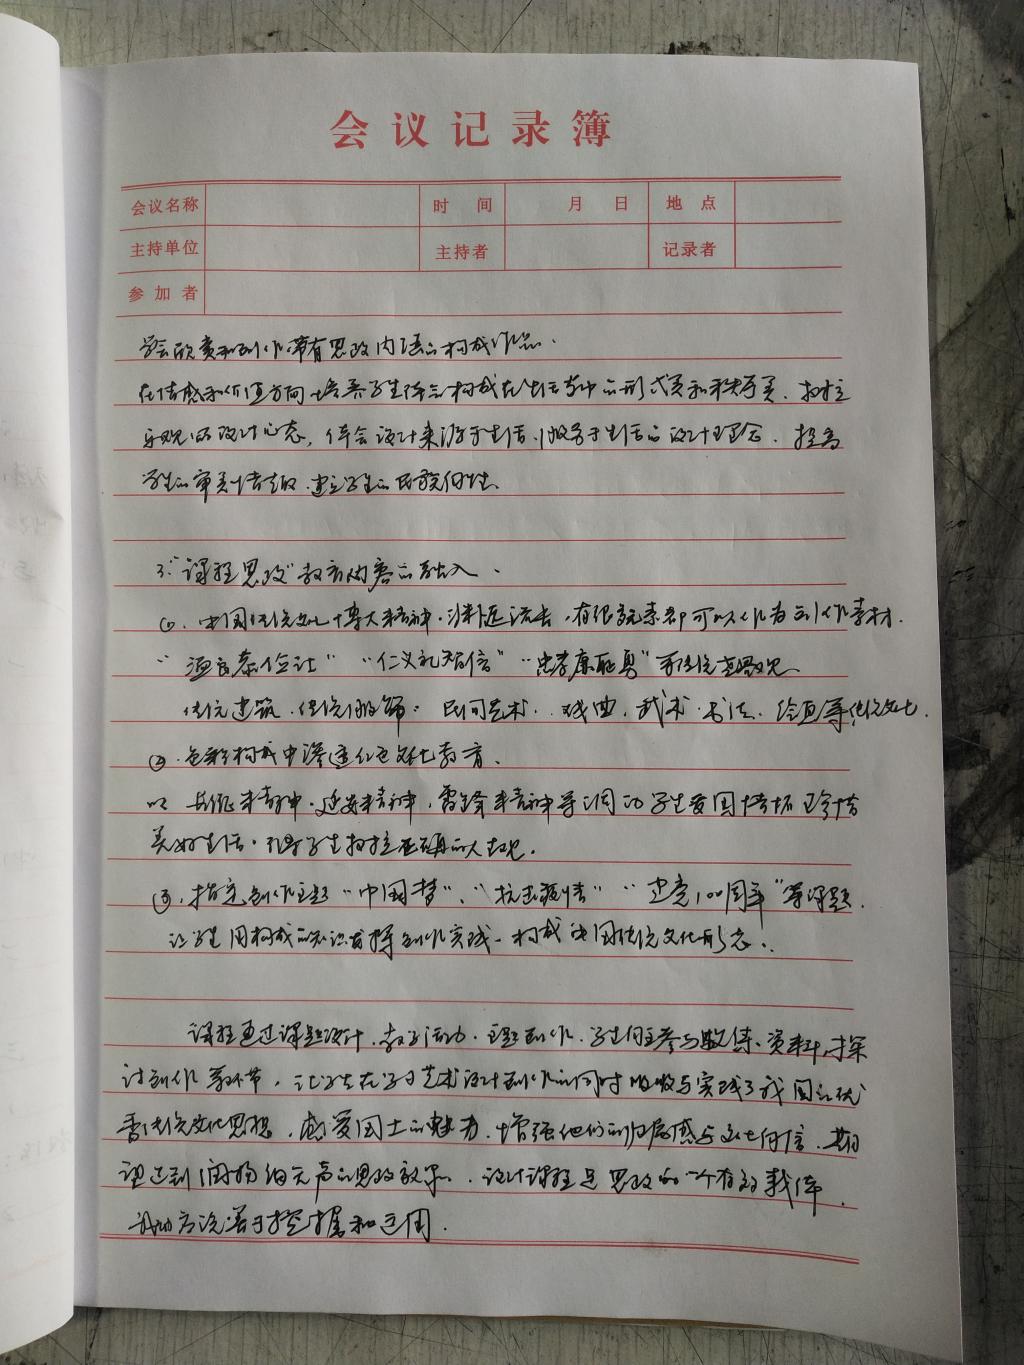 会议记录簿
会议名称 时间 月 日 地点
主持单位 主持者 记录者
参加者
学会欣赏和创作带有思政内涵的构成作品.
在情感和价值方向培养学生体会构成在生活当中的形式美和秩序美、树立
乐观的设计心态，体会设计来源于生活、服务于生活的设计理念．提高
学生的审美情趣．建立学生的民族自信.
3."课程思政"教育内容的融入．
①．中国传统文化博大精神．渊远流长，有很多元素都可以作为创作素材．
"温良恭俭让" "仁义礼智信" "忠孝廉耻勇"等传统道德观
传统建筑．传统服饰．民间艺术．戏曲．武术．书法．绘画等传统文化．
②．色彩构成中渗透红色文化教育．
以 长征精神．延安精神，雷锋精神等调动学生爱国情怀 珍惜
美好生活．引导学生树立正确的人生观．
③．指定创作主题"中国梦"、"抗击疫情" "建党100周年"等课题．
让学生用构成的知识发挥创作实践．构成中国传统文化形态．
课程通过课题设计．教学活动．主题创作．学生自主参与收集、资料，探
讨创作等环节，让学生在学习艺术设计创作的同时吸收与实践了我国的优
秀传统文化思想，感受国土的魅力，增强他们的归属感与文化自信，期
望达到润物细无声的思政效果．设计课程是思政的一个有效载体．
我们应该善于挖掘和运用．